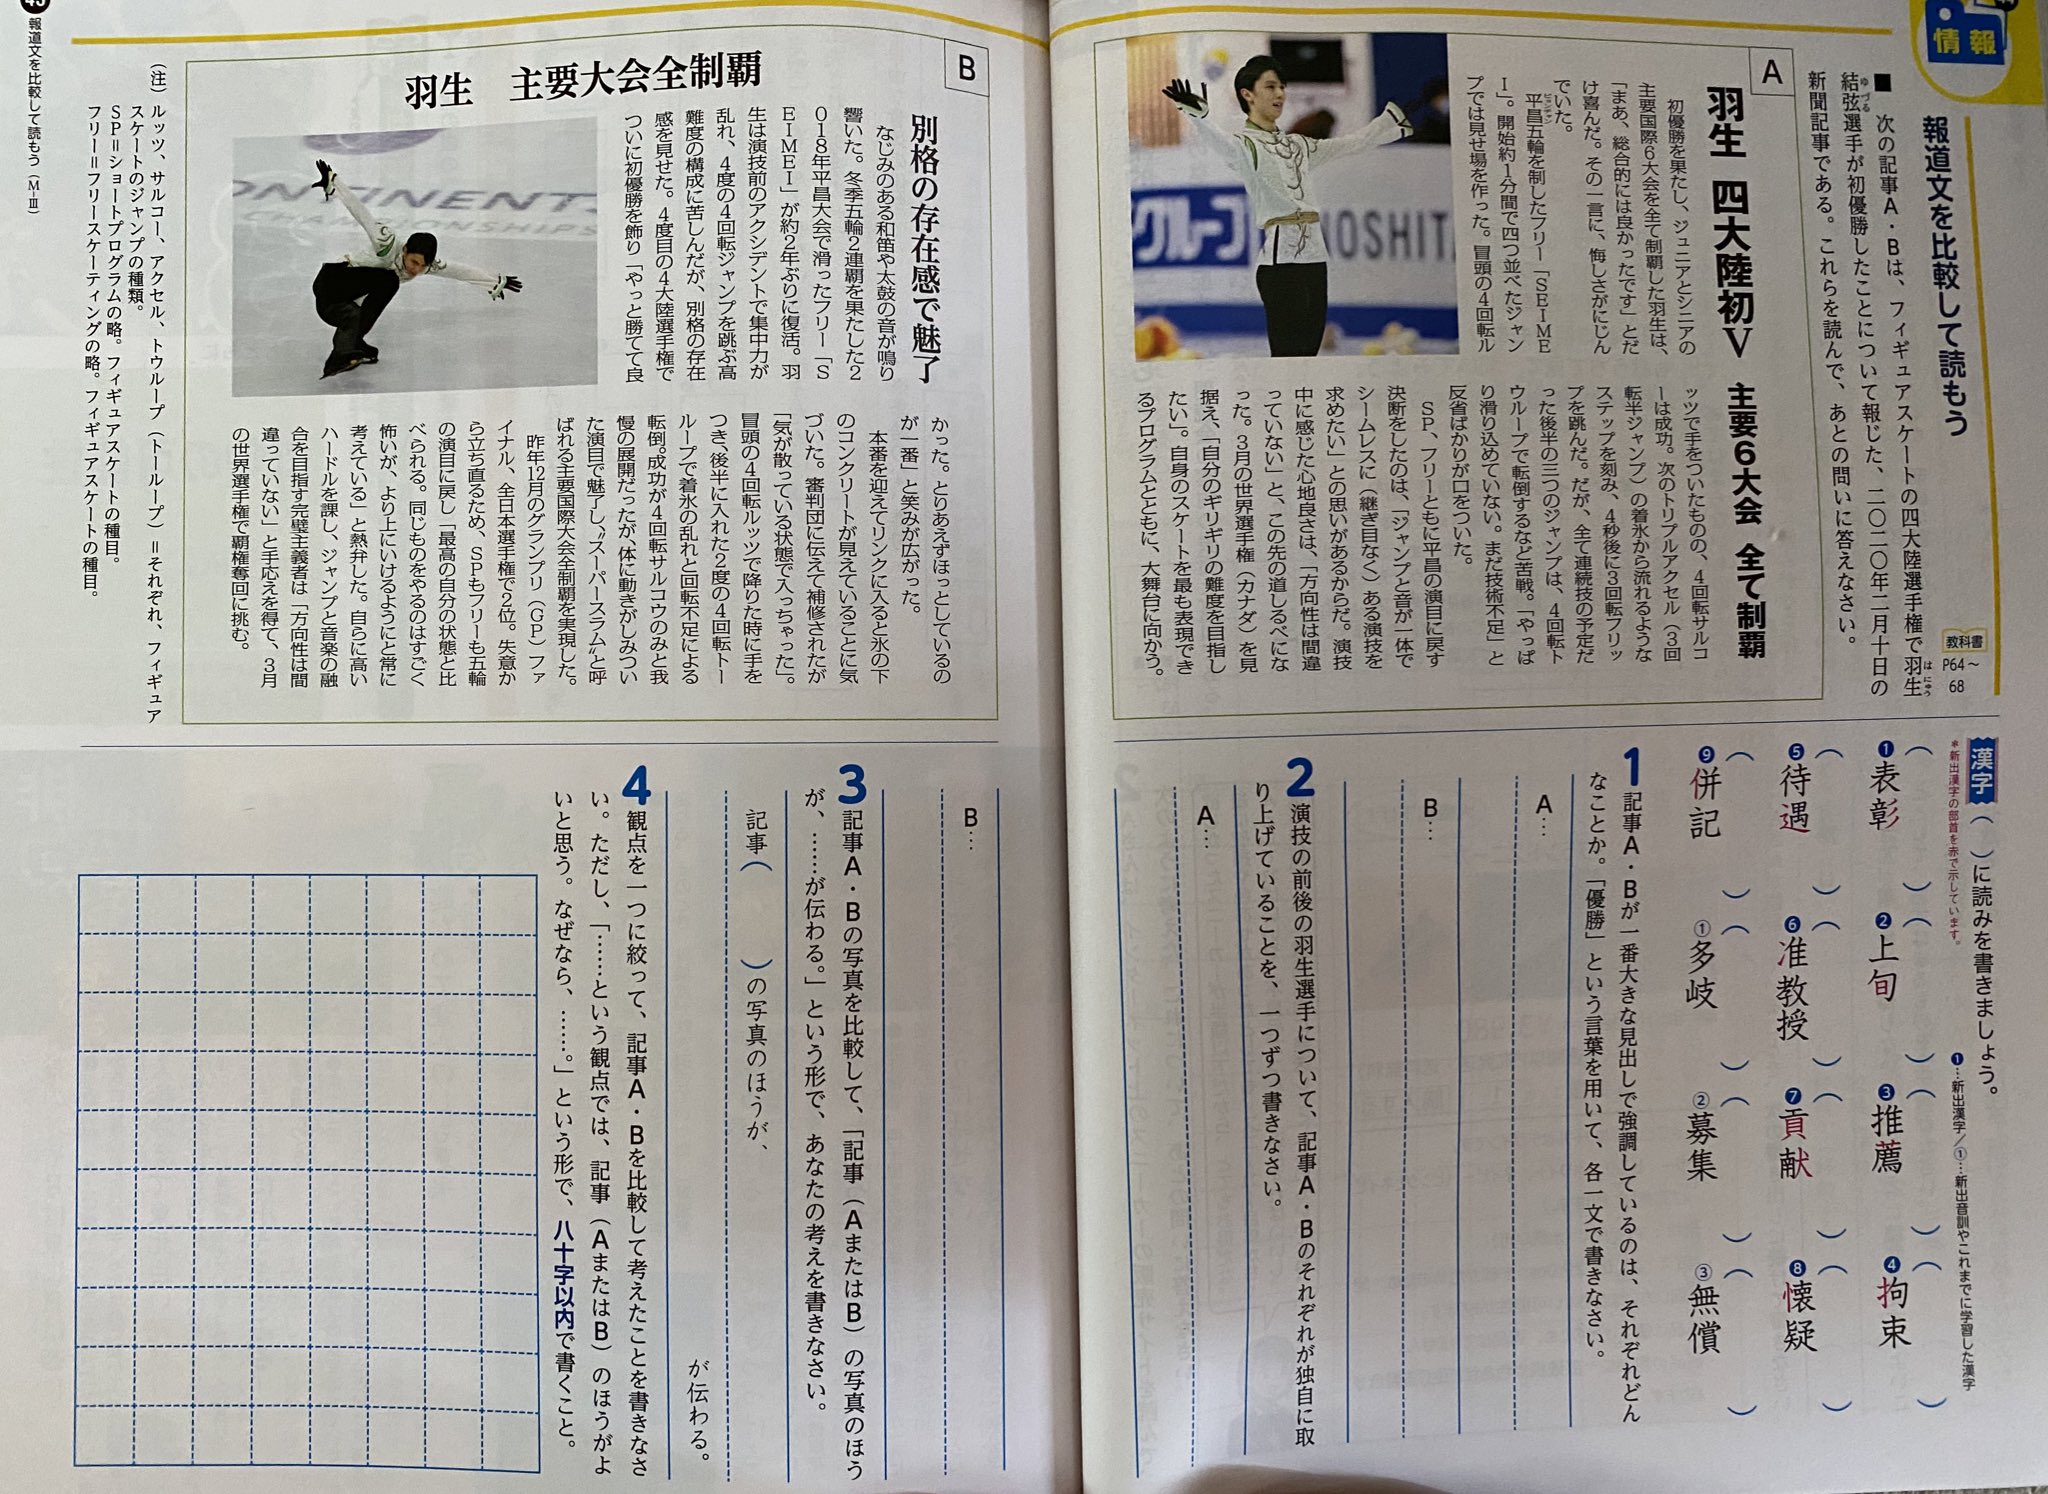 情報
報道文を比較して読もう
教科書
P64～
68
■ 次の記事A・Bは、フィギュアスケートの四大陸選手権で羽生
はにゅう
結弦選手が初優勝したことについて報じた、二〇二〇年二月十日の
ゆづる
新聞記事である。これらを読んで、あとの問いに答えなさい。
A
羽生 四大陸初V 主要6大会 全て制覇
初優勝を果たし、ジュニアとシニアの
主要国際6大会を全て制覇した羽生は、
「まあ、総合的には良かったです」とだ
け喜んだ。その一言に、悔しさがにじん
でいた。
平昌五輪を制したフリー「SEIME
ピョンチャン
I」。開始約1分間で四つ並べたジャン
プでは見せ場を作った。冒頭の4回転ル
ッツで手をついたものの、4回転サルコ
ーは成功。次のトリプルアクセル（3回
転半ジャンプ）の着氷から流れるような
ステップを刻み、4秒後に3回転フリッ
プを跳んだ。だが、全て連続技の予定だ
った後半の三つのジャンプは、4回転ト
ウループで転倒するなど苦戦。「やっぱ
り滑り込めていない。まだ技術不足」と
反省ばかりが口をついた。
SP、フリーともに平昌の演目に戻す
決断をしたのは、「ジャンプと音が一体で
シームレスに（継ぎ目なく）ある演技を
求めたい」との思いがあるからだ。演技
中に感じた心地良さは、「方向性は間違
っていない」と、この先の道しるべにな
った。3月の世界選手権（カナダ）を見
据え、「自分のギリギリの難度を目指し
たい」。自身のスケートを最も表現でき
るプログラムとともに、大舞台に向かう。
グループ
KINOSHITA
B
羽生 主要大会全制覇
別格の存在感で魅了
なじみのある和笛や太鼓の音が鳴り
響いた。冬季五輪2連覇を果たした2
018年平昌大会で滑ったフリー「S
EIMEI」が約2年ぶりに復活。羽
生は演技前のアクシデントで集中力が
乱れ、4度の4回転ジャンプを跳ぶ高
難度の構成に苦しんだが、別格の存在
感を見せた。4度目の4大陸選手権で
ついに初優勝を飾り「やっと勝てて良
かった。とりあえずほっとしているの
が一番」と笑みが広がった。
本番を迎えてリンクに入ると氷の下
のコンクリートが見えていることに気
づいた。審判団に伝えて補修されたが
「気が散っている状態で入っちゃった」。
冒頭の4回転ルッツで降りた時に手を
つき、後半に入れた2度の4回転トー
ループで着氷の乱れと回転不足による
転倒。成功が4回転サルコウのみと我
慢の展開だったが、体に動きがしみつい
た演目で魅了し、〝スーパースラム〟と呼
ばれる主要国際大会全制覇を実現した。
昨年12月のグランプリ（GP）ファ
イナル、全日本選手権で2位。失意か
ら立ち直るため、SPもフリーも五輪
の演目に戻し「最高の自分の状態と比
べられる。同じものをやるのはすごく
怖いが、より上にいけるようにと常に
考えている」と熱弁した。自らに高い
ハードルを課し、ジャンプと音楽の融
合を目指す完璧主義者は「方向性は間
違っていない」と手応えを得て、3月
の世界選手権で覇権奪回に挑む。
CONTINENTS
CHAMPIONSHIPS
（注） ルッツ、サルコー、アクセル、トウループ（トーループ）＝それぞれ、フィギュア
スケートのジャンプの種類。
SP＝ショートプログラムの略。フィギュアスケートの種目。
フリー＝フリースケーティングの略。フィギュアスケートの種目。
漢字 （ ）に読みを書きましょう。
＊新出漢字の部首を赤で示しています。
❶…新出漢字／①…新出音訓やこれまでに学習した漢字
❶表彰
❷上旬
❸推薦
❹拘束
❺待遇
❻准教授
❼貢献
❽懐疑
❾併記
①多岐
②募集
③無償
1 記事A・Bが一番大きな見出しで強調しているのは、それぞれどん
なことか。「優勝」という言葉を用いて、各一文で書きなさい。
A…
B…
2 演技の前後の羽生選手について、記事A・Bのそれぞれが独自に取
り上げていることを、一つずつ書きなさい。
A…
B…
3 記事A・Bの写真を比較して、「記事（AまたはB）の写真のほう
が、……が伝わる。」という形で、あなたの考えを書きなさい。
記事（ ）の写真のほうが、
が伝わる。
4 観点を一つに絞って、記事A・Bを比較して考えたことを書きなさ
い。ただし、「……という観点では、記事（AまたはB）のほうがよ
いと思う。なぜなら、……。」という形で、八十字以内で書くこと。
報道文を比較して読もう（M-Ⅲ）